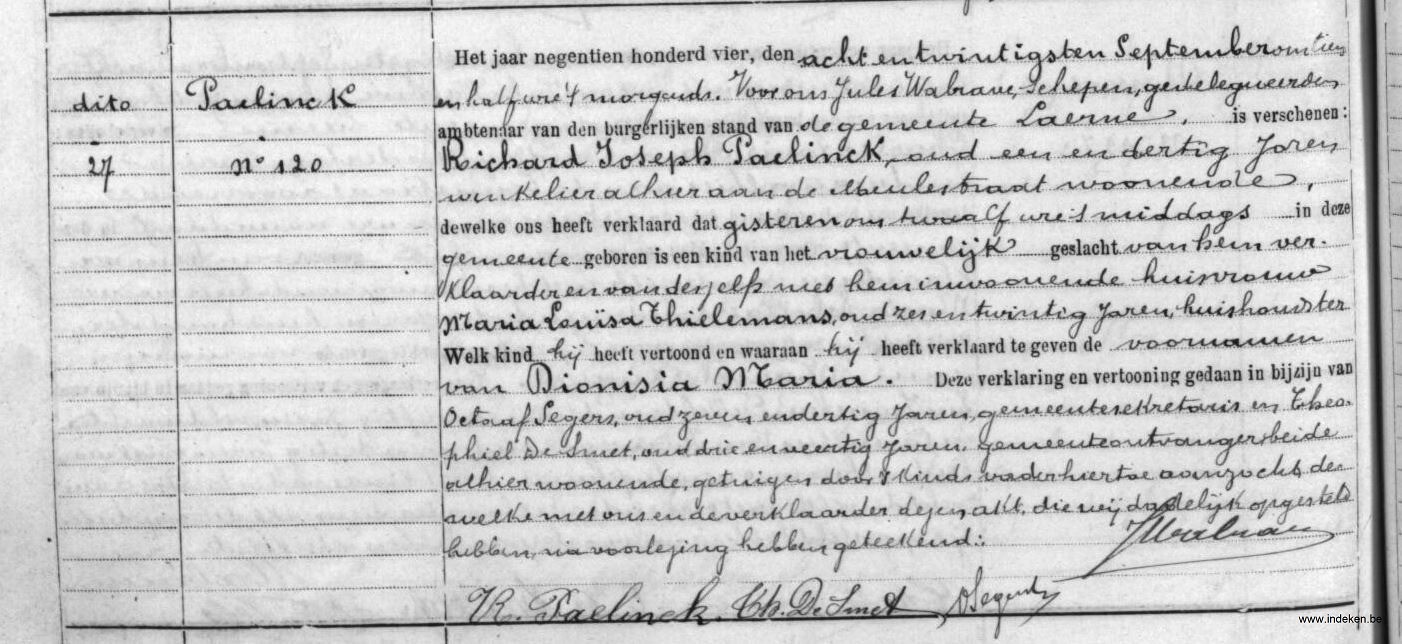 dito
27
Paelinck
N° 120
Het jaar negentien honderd vier, den acht en twintigsten September om tien
en half ure 's morgends. Voor ons Jules Walrave, Schepen, gedelegueerden
ambtenaar van den burgerlijken stand van de gemeente Laerne, is verschenen:
Richard Joseph Paelinck, oud een en dertig Jaren
winkelier alhier aan de Meulestraat woonende,
dewelke ons heeft verklaard dat gisteren om twaalf ure 's middags in deze
gemeente geboren is een kind van het vrouwelijk geslacht van hem ver-
klaarder en van deszelfs met hem inwoonende huisvrouw
Maria Louïsa Thielemans, oud zes en twintig Jaren, huishoudster
Welk kind hij heeft vertoond en waaraan hij heeft verklaard te geven de voornamen
van Dionisia Maria. Deze verklaring en vertooning gedaan in bijzijn van
Octaaf Segers, oud zeven en dertig Jaren, gemeentesekretaris en Theo-
phiel De Smet, oud drie en veertig Jaren, gemeenteontvanger, beide
alhier woonende, getuigen door 't kinds vader hiertoe aanzocht, de-
welke met ons en de verklaarder dezen akt, die wij dadelijk opgesteld
hebben, na voorlezing hebben geteekend:.
JWalrave
R. Paelinck. Th. De Smet OSegers
www.indeken.be